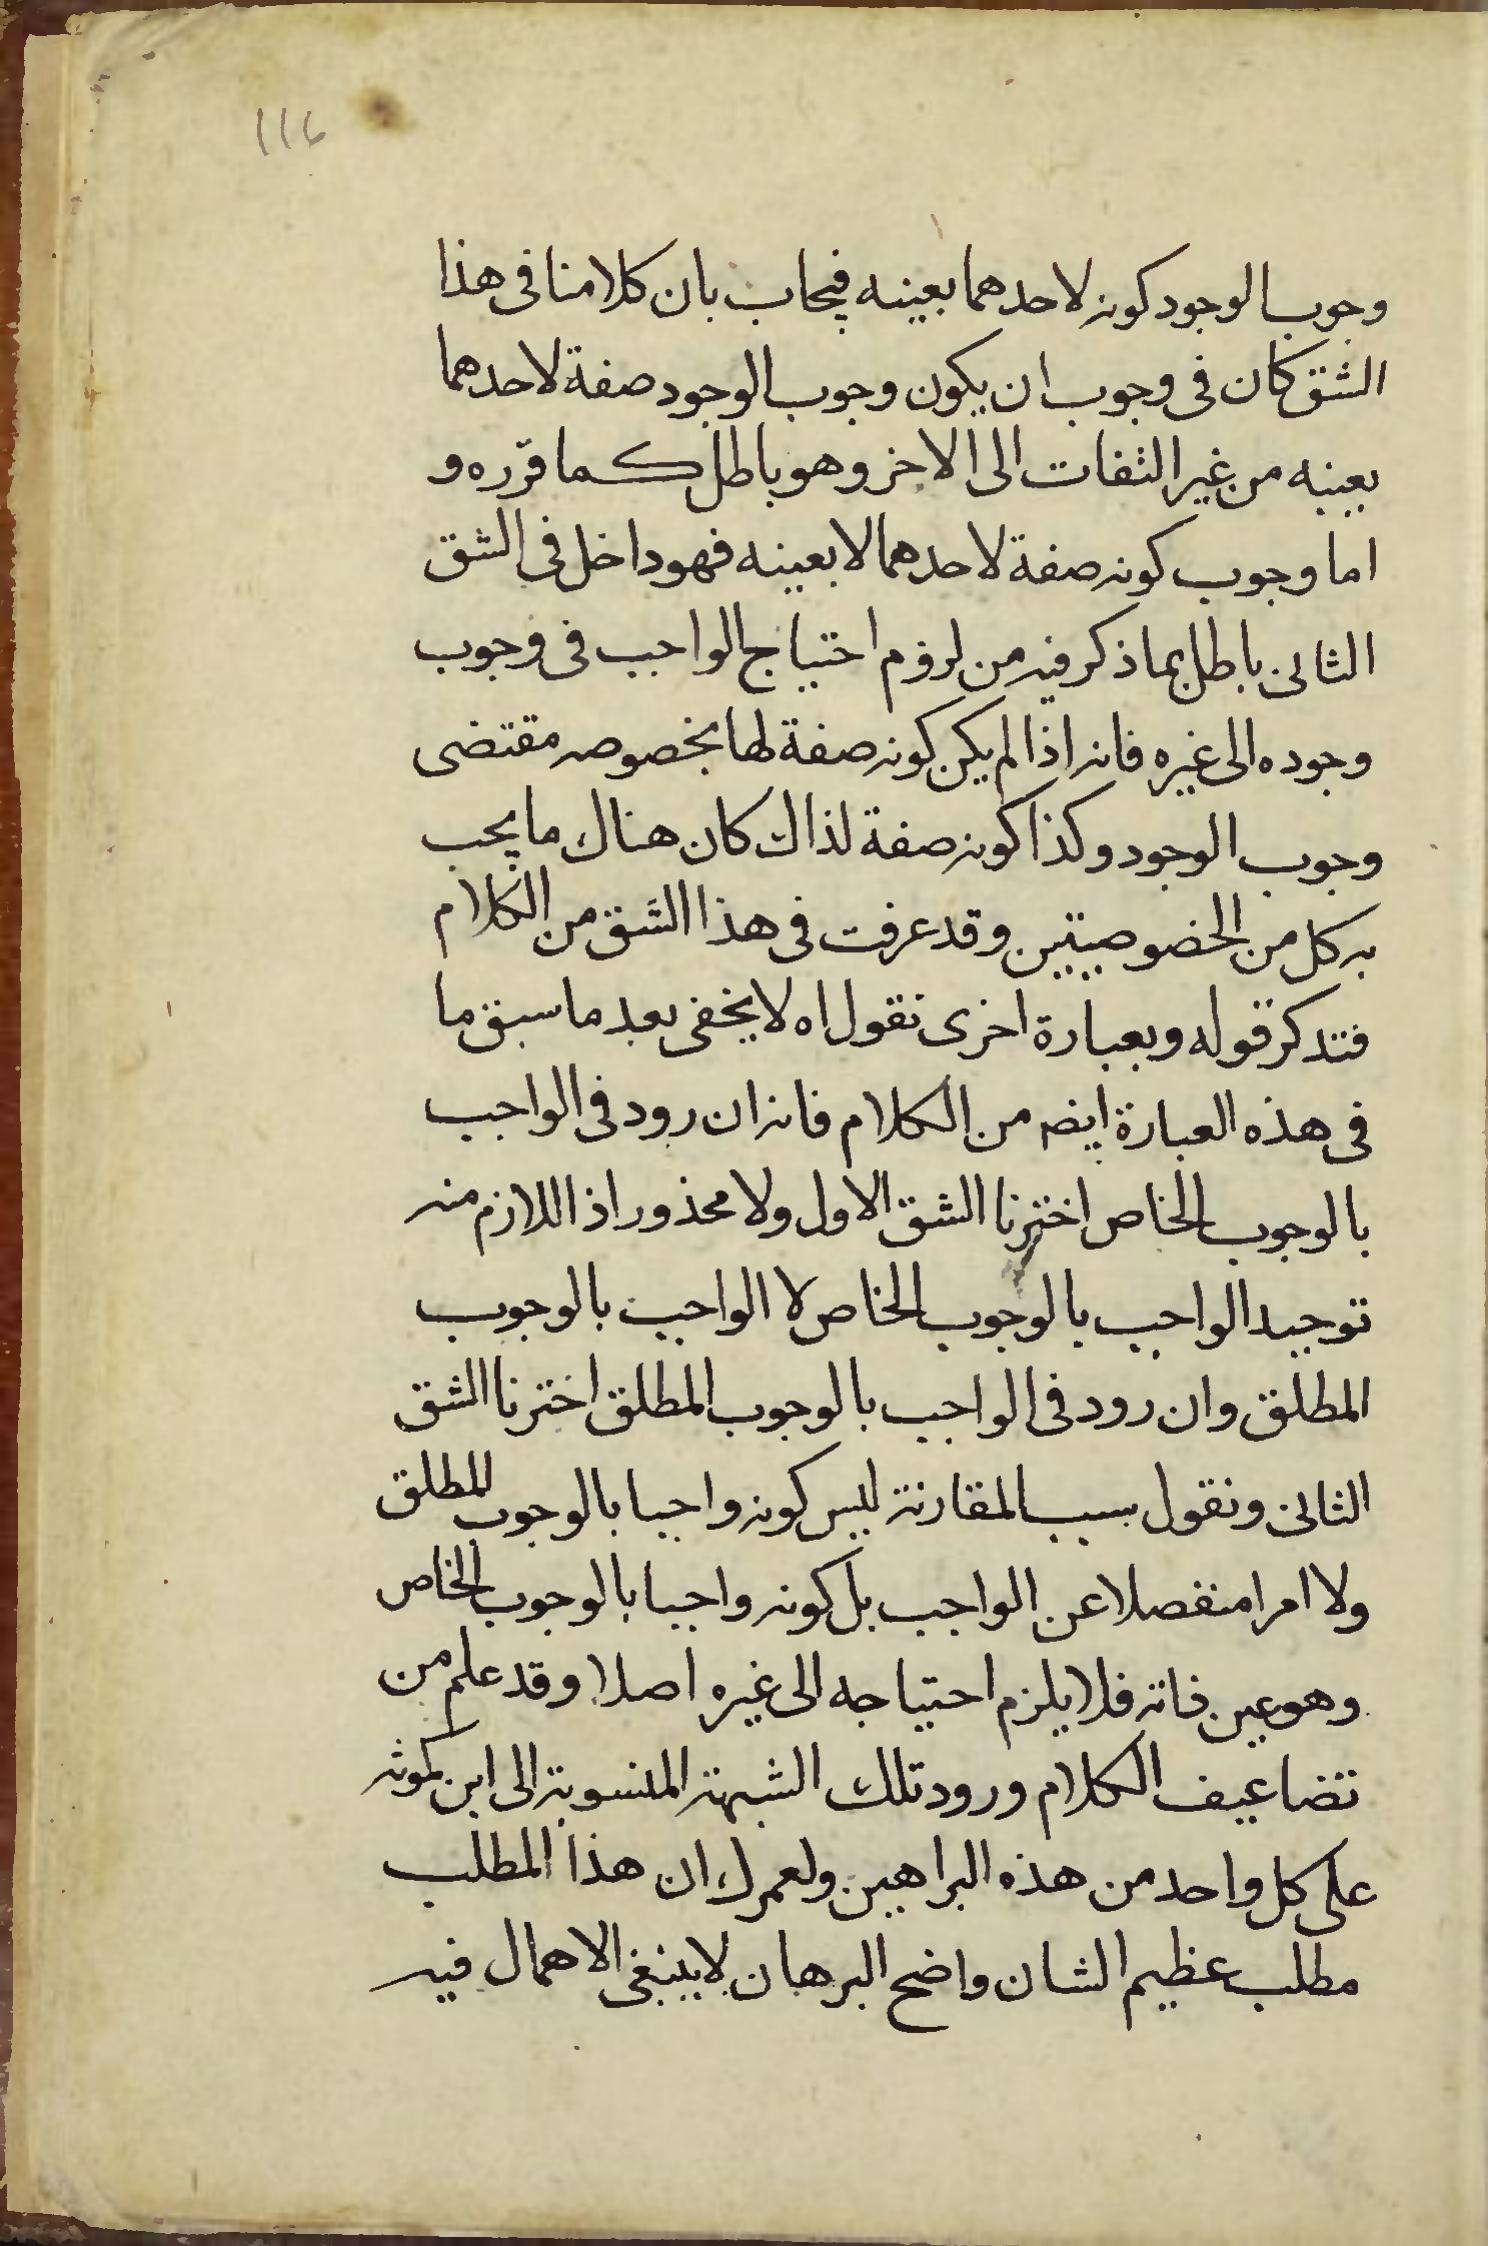 ١١٦
وجوب الوجود كونه لاحدهما بعينه فيجاب بان كلامنا فى هذا
الشق كان فى وجوب ان يكون وجوب الوجود صفة لاحدهما
بعينه من غير التفات الى الاخر وهو باطل كما قرّره و
اما وجوب كونه صفة لاحدهما لا بعينه فهو داخل فى الشق
الثانى باطل بما ذكر فيه من لزوم احتياج الواجب فى وجوب
وجوده الى غيره فانه اذا لم يكن كونه صفة لها بخصوصه مقتضى
وجوب الوجود وكذا كونه صفة لذاك كان هناك ما يجب
به كل من الخصوصيتين وقد عرفت فى هذا الشق من الكلام
فتذكر قوله وبعبارة اخرى نقول اه لا يخفى بعد ما سبق ما
فى هذه العبارة ايضه من الكلام فانه ان رود فى الواجب
بالوجوب الخاص اخترنا الشق الاول ولا محذور اذا اللازم منه
توحيد الواجب بالوجوب الخاص لا الواجب بالوجوب
المطلق وان رود فى الواجب بالوجوب المطلق اخترنا الشق
الثانى ونقول سبب المقارنة ليس كونه واجبا بالوجوب المطلق
ولا امرا منفصلا عن الواجب بل كونه واجبا بالوجوب الخاص
وهو عين ذاته فلا يلزم احتياجه الى غيره اصلا وقد علم من
تضاعيف الكلام ورود تلك الشبهة المنسوبة الى ابن كمونه
على كل واحد من هذه البراهين ولعمرك ان هذا المطلب
مطلب عظيم الشان واضح البرهان لا ينبغى الاهمال فيه